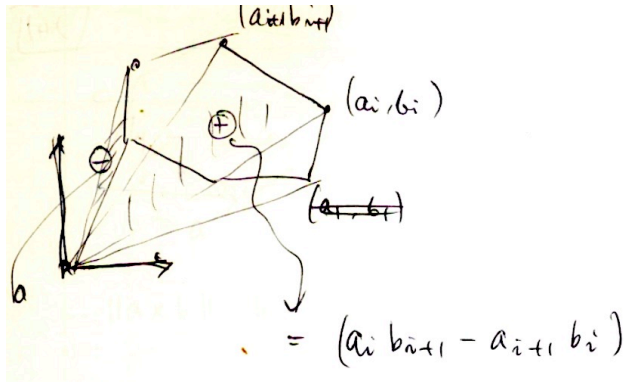 (a_{i+1} b_{i+1})
(a_i, b_i)
⊕
⊖
a
= (a_i b_{i+1} - a_{i+1} b_i)